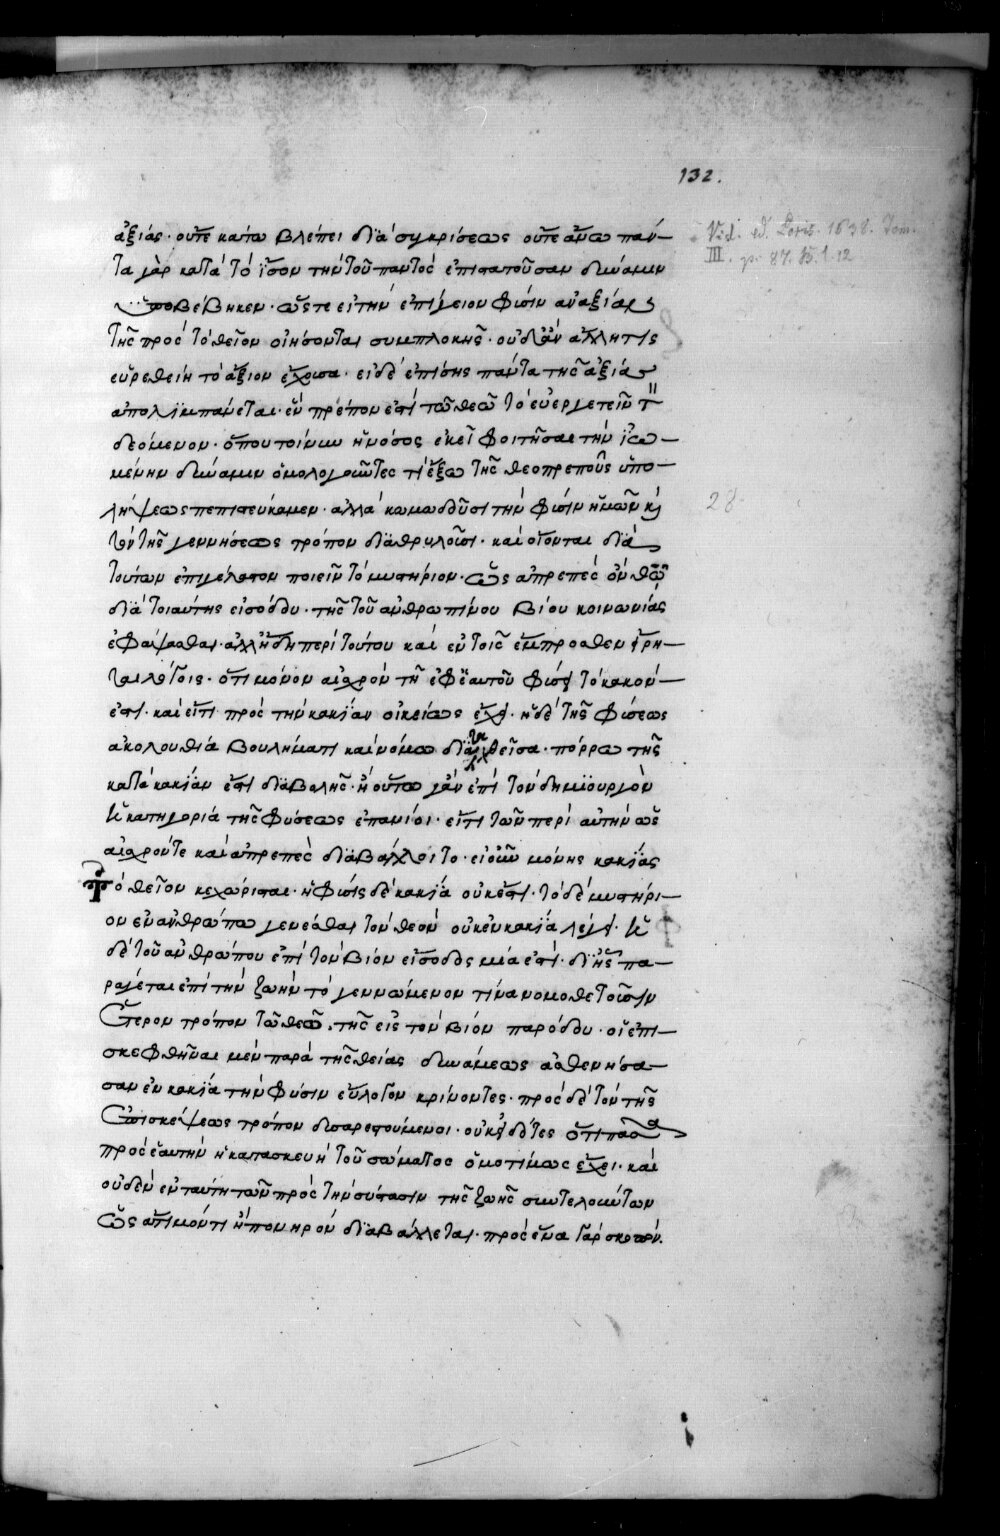 132.
Vid. ed. Paris. 1638. Tom.
III. p. 87.
ἀξίας· οὔτε κάτω βλέπει διὰ συγκρίσεως οὔτε ἄνω πάν-
τα γὰρ κατὰ τὸ ἴσον τὴν τοῦ παντὸς ἐπιστατοῦσαν δύναμιν
ὑποβέβηκεν· ὥστε εἰ τὴν ἐπίγειον φύσιν ἀναξίαν
τῆς πρὸς τὸ θεῖον οἰήσονται συμπλοκῆς· οὐδ' ἂν ἄλλη τις
εὑρεθείη τὸ ἄξιον ἔχουσα· εἰ δὲ ἐπίσης πάντα τῆς ἀξίας
ἀπολιμπάνεται· ἓν πρέπον ἐστὶ τῶ θεῶ τὸ εὐεργετεῖν τ
δεόμενον· ὅπου τοίνυν ἡ νόσος ἐκεῖ φοιτῆσαι τὴν ἰω-
μένην δύναμιν ὁμολογοῦντες τί ἔξω τῆς θεοπρεποῦς ὑπο-
λήψεως πεπιστεύκαμεν· ἀλλὰ κωμωδοῦσι τὴν φύσιν ἡμῶν κ
28
τὸν τῆς γεννήσεως τρόπον διαθρυλοῦσι· καὶ οἴονται διὰ
τούτων ἐπιγέλαστον ποιεῖν τὸ μυστήριον· ὡς ἀπρεπὲς ὂν θῶ
διὰ τοιαύτης εἰσόδου· τῆς τοῦ ἀνθρωπίνου βίου κοινωνίας
ἐφάψασθαι· ἀλλ' ἤδη περὶ τούτου καὶ ἐν τοῖς ἔμπροσθεν εἴρη-
ται λόγοις· ὅτι μόνον αἰσχρὸν τῆ ἐφ' ἑαυτοῦ φύσει τὸ κακόν-
ἐστι· καὶ εἴ τι πρὸς τὴν κακίαν οἰκείως ἔχει· ἡ δὲ τῆς φύσεως
ἀκολουθία βουλήματι καὶ νόμω διαταχθεῖσα· πόρρω τῆς
κατὰ κακίαν ἐστὶ διαβολῆς· ἢ οὕτω γ' ἂν ἐπὶ τὸν δημιουργὸν
ἡ κατηγορία τῆς φύσεως ἐπανίοι· εἴ τι τῶν περὶ αὐτὴν ὡς
αἰσχρόν τε καὶ ἀπρεπὲς διαβάλλοιτο· εἰ οὖν μόνης κακίας
τὸ θεῖον κεχώρισται· ἡ φύσις δὲ κακία οὐκ ἔστι· τὸ δὲ μυστήρι-
ον ἐν ἀνθρώπω γενέσθαι τὸν θεὸν οὐκ ἐν κακία λέγει· ἡ
δὲ τοῦ ἀνθρώπου ἐπὶ τὸν βίον εἴσοδος μία ἐστί· δι' ἧς πα-
ράγεται ἐπὶ τὴν ζωὴν τὸ γεννώμενον τίνα νομοθετοῦσιν
ἕτερον τρόπον τῶ θεῶ· τῆς εἰς τὸν βίον παρόδου· οἱ ἐπι-
σκεφθῆναι μὲν παρὰ τῆς θείας δυνάμεως ἀσθενήσα-
σαν ἐν κακία τὴν φύσιν εὔλογον κρίνοντες· πρὸς δὲ τὸν τῆς
ἐπισκέψεως τρόπον δυσαρεστούμενοι· οὐκ εἰδότες ὅτι πᾶσα
πρὸς ἑαυτὴν ἡ κατασκευὴ τοῦ σώματος ὁμοτίμως ἔχει· καὶ
οὐδὲν ἐν ταύτη τῶν πρὸς τὴν σύστασιν τῆς ζωῆς συντελούντων
ὡς ἄτιμόν τι ἢ πονηρὸν διαβάλλεται· πρὸς ἕνα γὰρ σκοπόν.